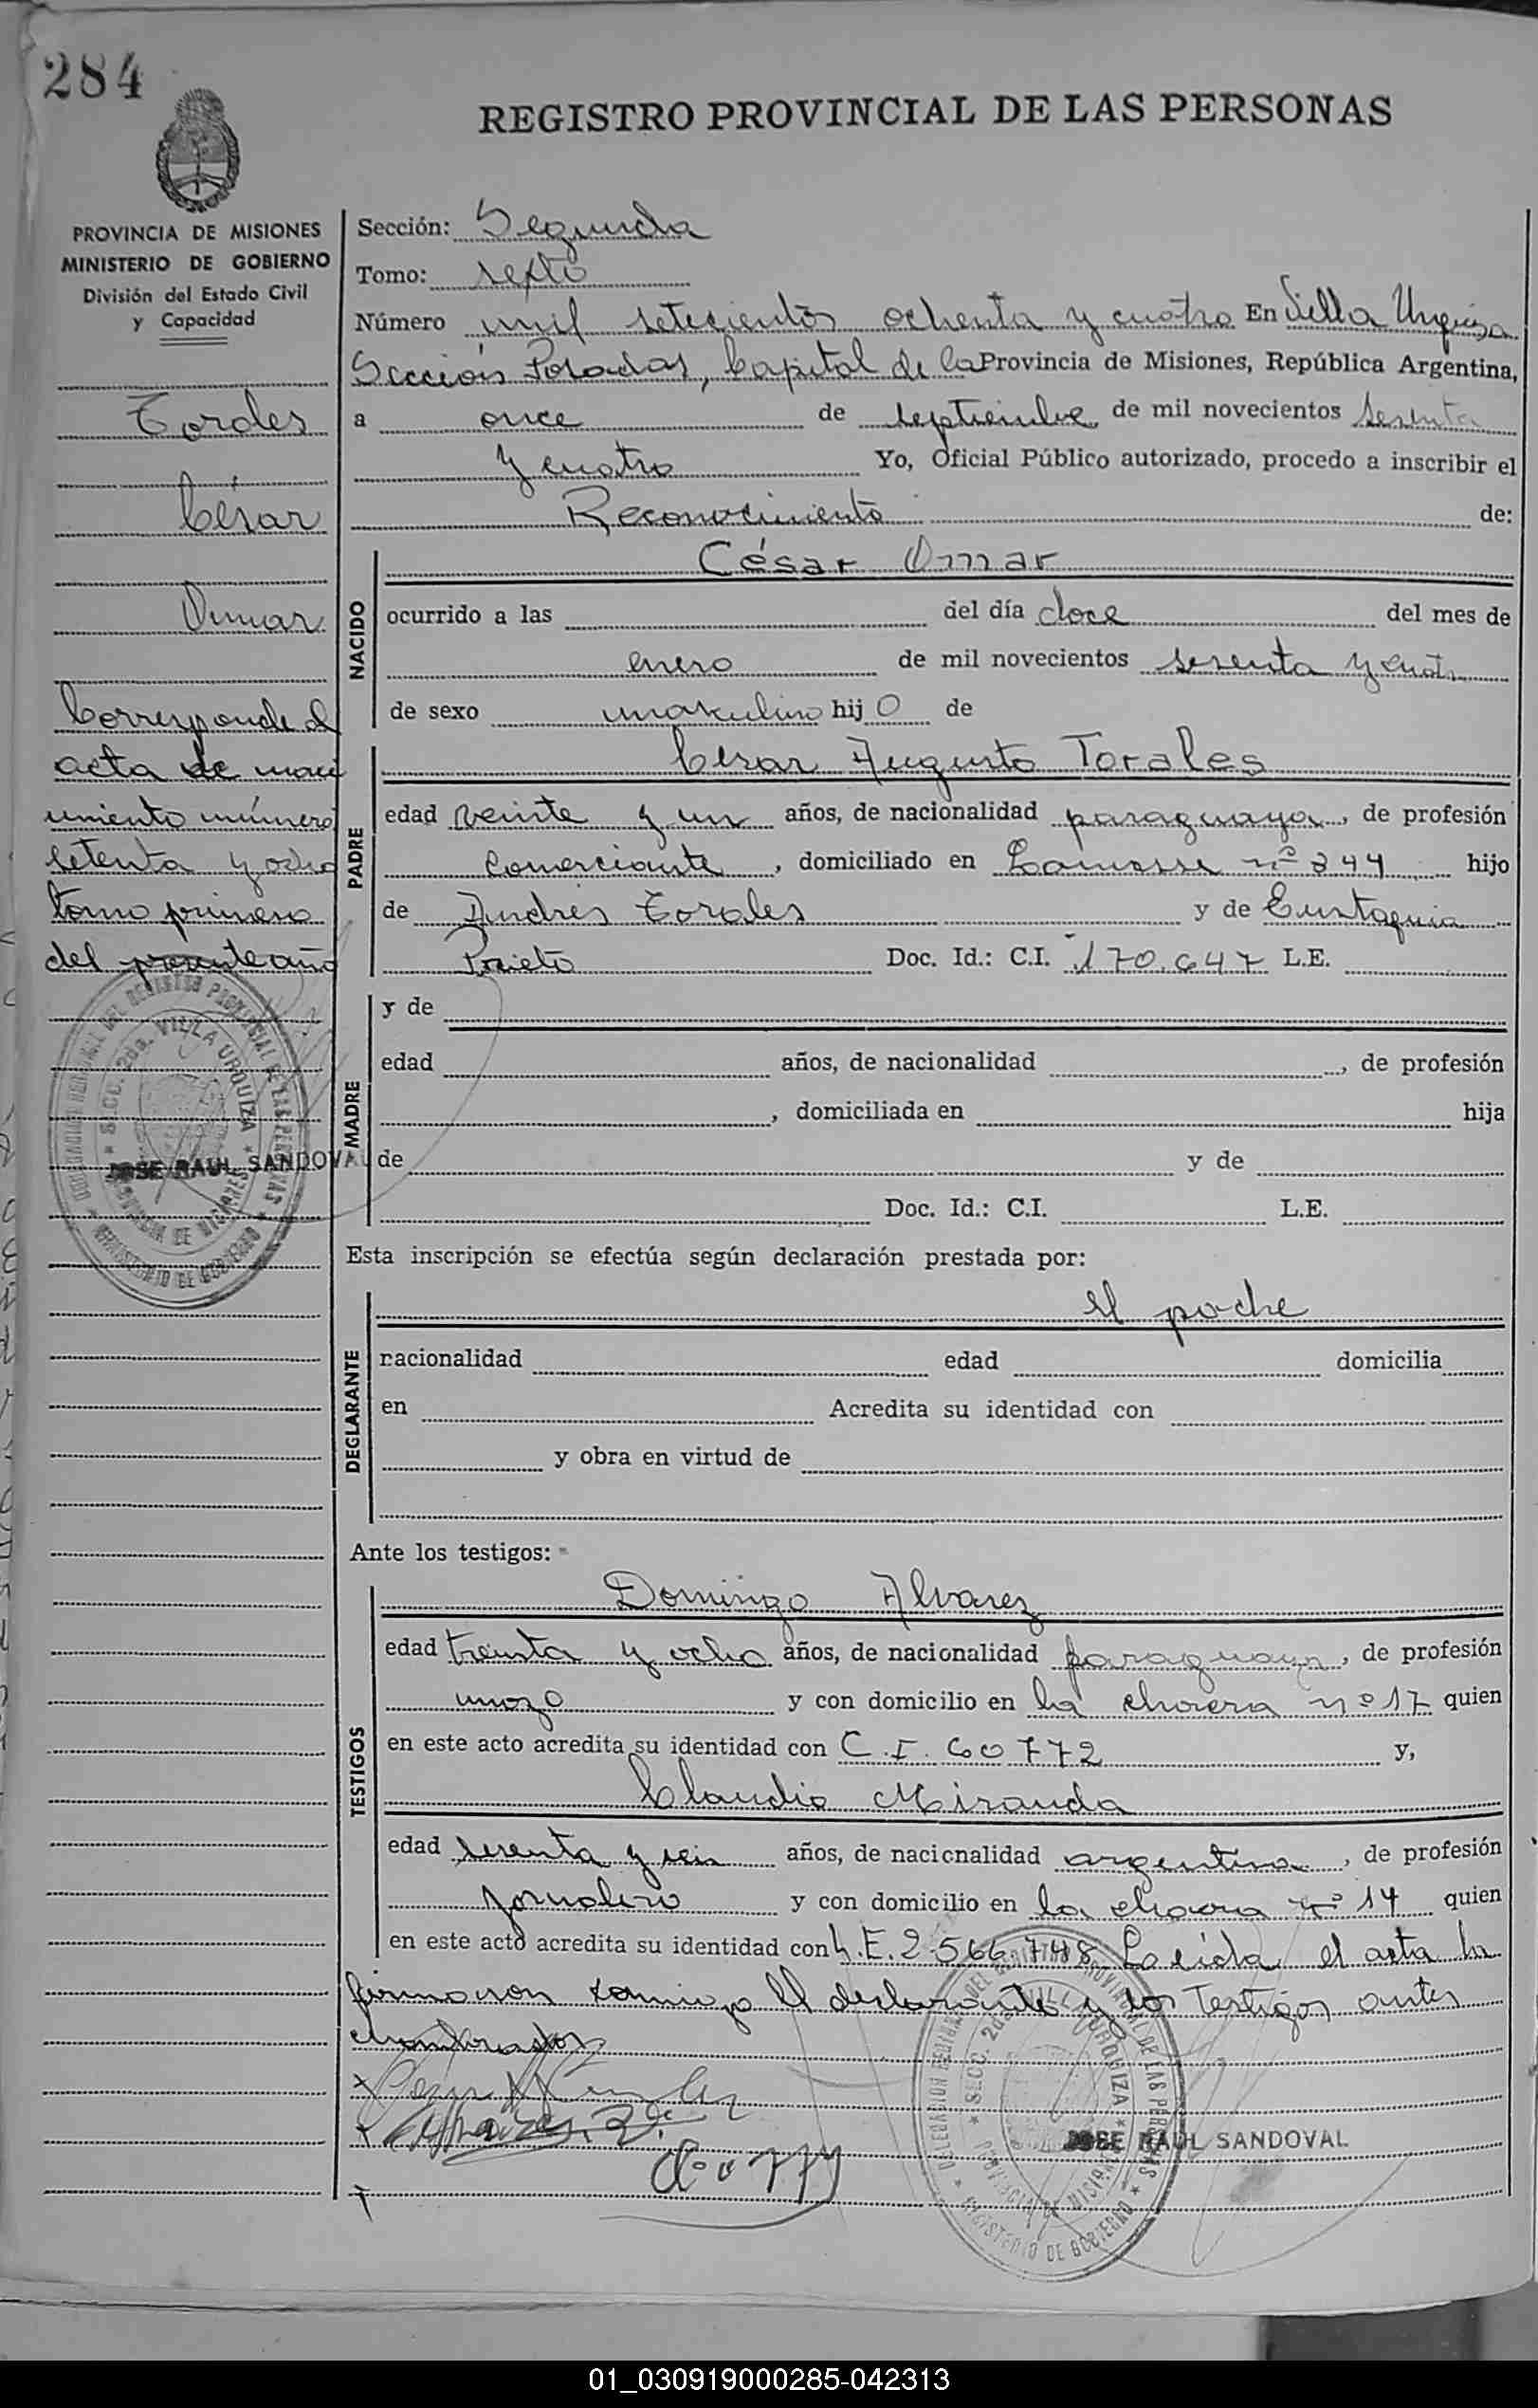 284
REGISTRO PROVINCIAL DE LAS PERSONAS
PROVINCIA DE MISIONES
MINISTERIO DE GOBIERNO
División del Estado Civil
y Capacidad
Torales
César
Omar
Corresponde al
acta de naci
miento número
setenta y ocho
tomo primero
del presente año
JOSE RAUL SANDOVAL
Sección: Segunda
Tomo: sexto
Número mil setecientos ochenta y cuatro En Villa Urquiza
Sección Posadas, Capital de la Provincia de Misiones, República Argentina,
a once de septiembre de mil novecientos sesenta
y cuatro Yo, Oficial Público autorizado, procedo a inscribir el
Reconocimiento de:
NACIDO
César Omar
ocurrido a las del día doce del mes de
enero de mil novecientos sesenta y cuatro
de sexo masculino hijo de
PADRE
César Augusto Torales
edad veinte y un años, de nacionalidad paraguaya, de profesión
comerciante, domiciliado en nº 344 hijo
de Andrés Torales y de Eustaquia
Prieto Doc. Id.: C.I. 170.647 L.E.
MADRE
y de
edad años, de nacionalidad , de profesión
, domiciliada en hija
de y de
Doc. Id.: C.I. L.E.
Esta inscripción se efectúa según declaración prestada por:
DECLARANTE
el padre
nacionalidad edad domicilia
en Acredita su identidad con
y obra en virtud de
Ante los testigos:
TESTIGOS
Domingo Alvarez
edad treinta y ocho años, de nacionalidad paraguaya, de profesión
mozo y con domicilio en la chacra nº 17 quien
en este acto acredita su identidad con C.I. 60772 y,
Claudio Miranda
edad sesenta y seis años, de nacionalidad argentina, de profesión
jornalero y con domicilio en la chacra nº 14 quien
en este acto acredita su identidad con L.E. 2.566.748 Leída el acta la
firmaron conmigo el declarante y los testigos antes
nombrados
JOSE RAUL SANDOVAL
DELEGACION REGIONAL DEL REGISTRO PROVINCIAL DE LAS PERSONAS
SECC. 2da. VILLA URQUIZA
PROVINCIA DE MISIONES
MINISTERIO DE GOBIERNO
01_030919000285-042313